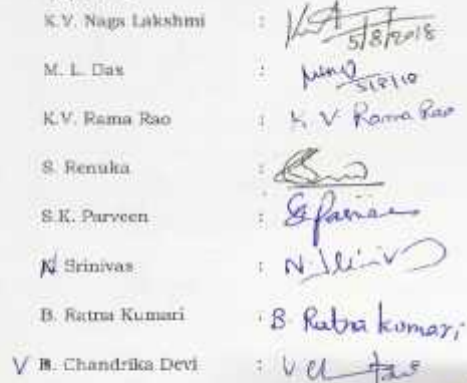 K.V. Naga Lakshmi : 5/8/2018
M. L. Das : 5/8/18
K.V. Rama Rao : K. V Rama Rao
S. Renuka :
S.K. Parveen : Sk Parveen
N Srinivas : N. Sriniv
B. Ratna Kumari : B. Ratna kumari
V Chandrika Devi : V Ch